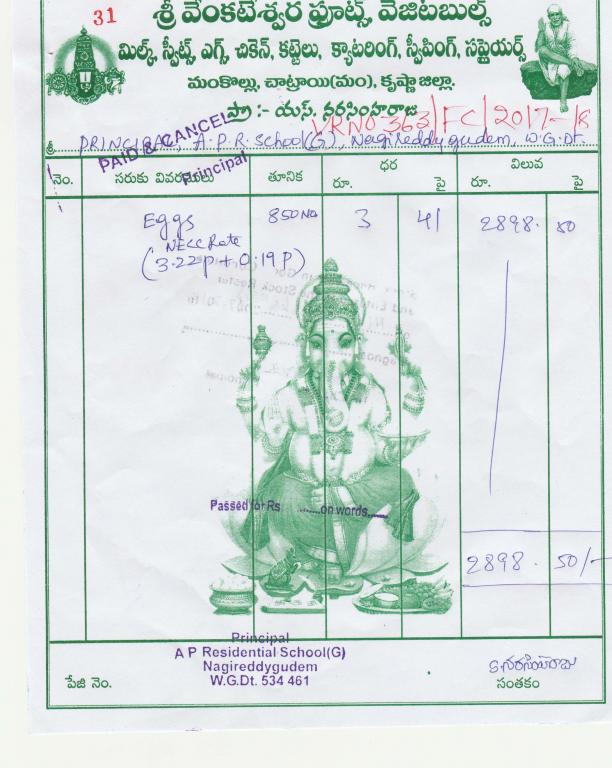 31
శ్రీ వేంకటేశ్వర ఫ్రూట్స్, వెజిటబుల్స్
మిల్క్, స్వీట్స్, ఎగ్స్, చికెన్, కట్టెలు, క్యాటరింగ్, స్వీపింగ్, సప్లైయర్స్
మంకొల్లు, చాట్రాయి(మం), కృష్ణా జిల్లా.
ప్రొ :- యస్. నరసింహరాజు
VRNO 363/FC/2017-18
శ్రీ PRINCIPAL A.P.R. School(G), Nagireddygudem, W.G.Dt.
PAID & CANCEL
Principal
నెం. సరుకు వివరములు తూనిక ధర విలువ
రూ. పై రూ. పై
Eggs 850 No 3 41 2898. 50
NECC Rate
(3.22p + 0.19 P)
Passed for Rs ........on words......
2898. 50/-
Principal
A P Residential School(G)
Nagireddygudem
W.G.Dt. 534 461
S నరసింహరాజు
పేజి నెం. సంతకం